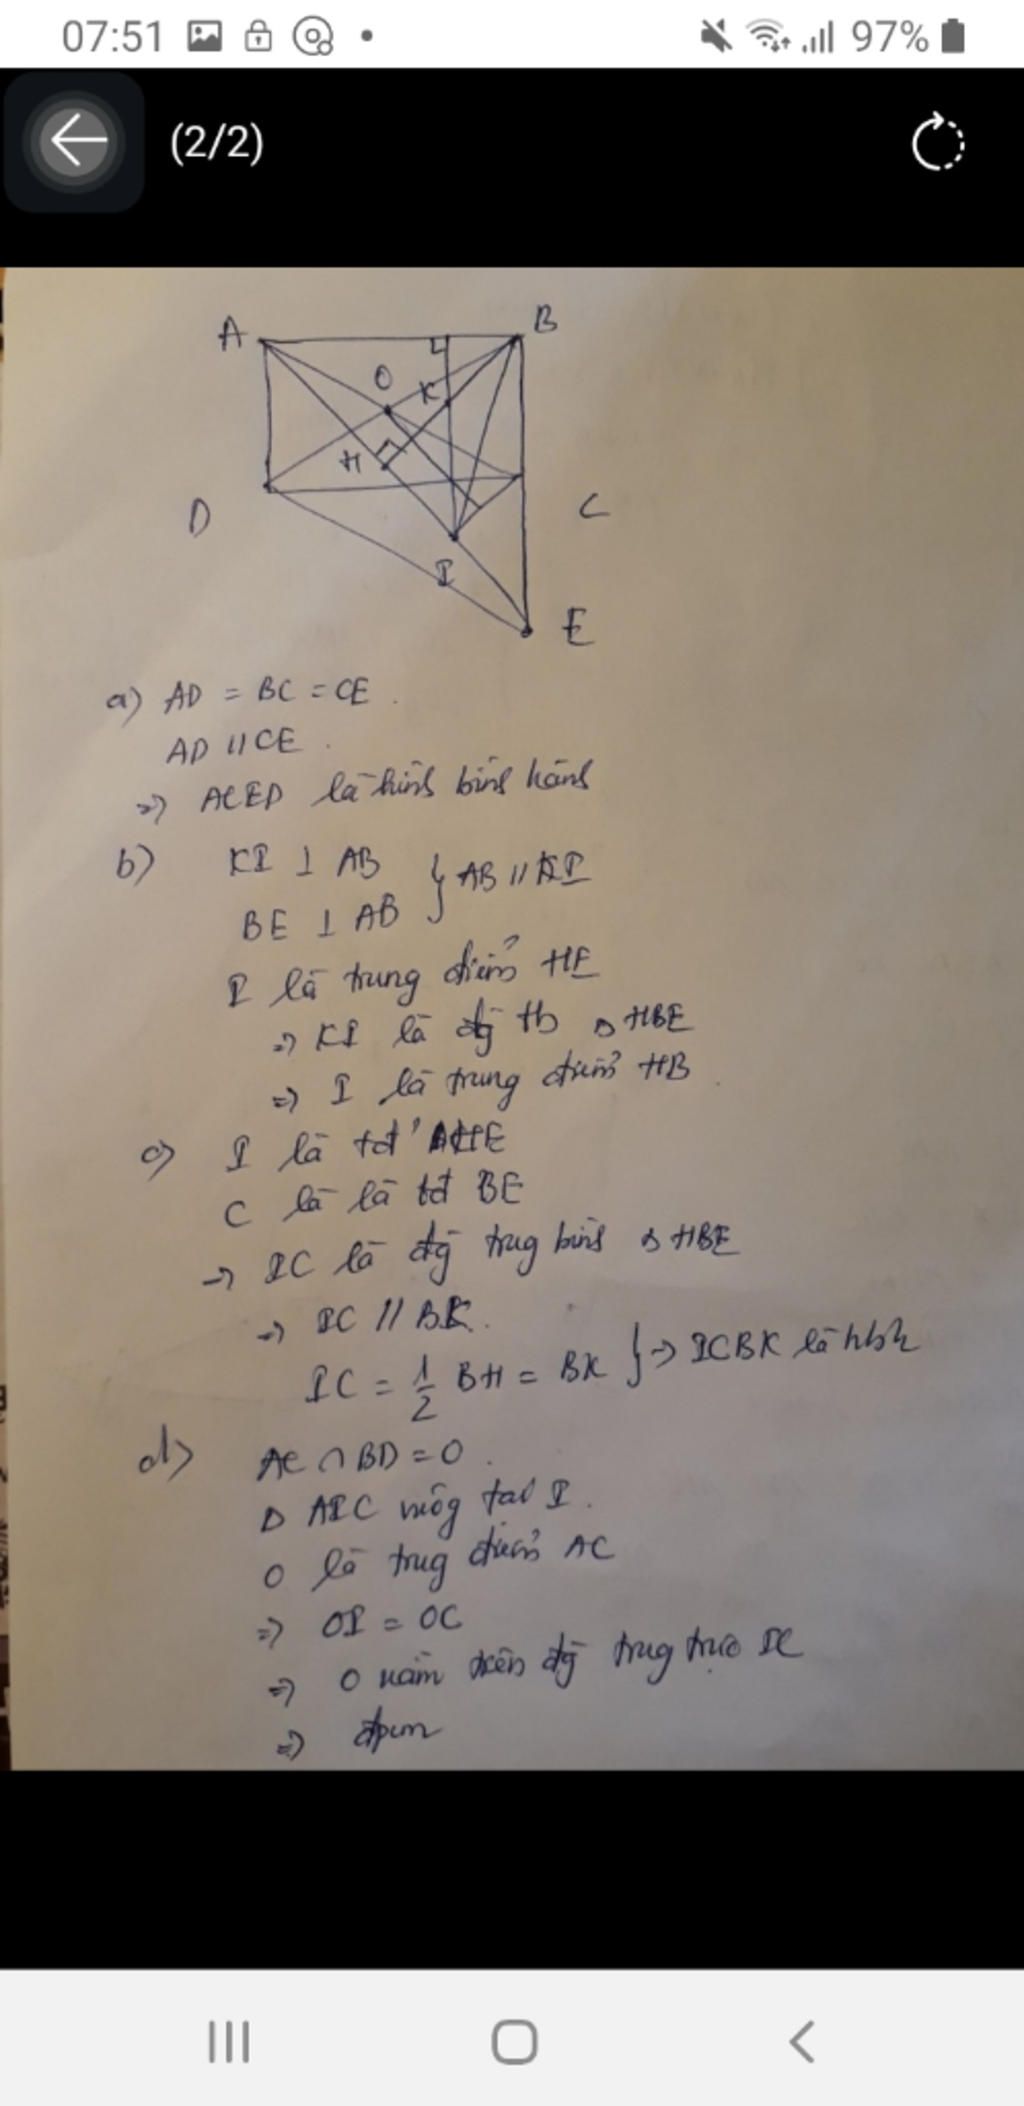 07:51
97%
(2/2)
A
B
O
K
H
D
C
I
E
a) AD = BC = CE.
AD // CE.
=> ACED là hình bình hành
b) KI ⊥ AB
BE ⊥ AB } AB // KI
I là trung điểm HE
=> KI là đg tb Δ HBE
=> I là trung điểm HB.
c) I là tđ HE
C là là tđ BE
-> IC là đg trug bình Δ HBE
-> IC // BK.
IC = 1/2 BH = BK } -> ICBK là hbh
d) AC ∩ BD = O.
Δ AIC vuông tại I.
O là trug điểm AC
=> OI = OC
=> O nằm trên đg trug trực IC
=> đpcm